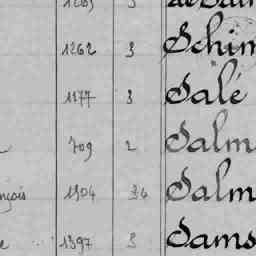 1262 3 Schim
1177 3 Salé
709 2 Salm
nçois 1904 34 Salm
1897 3 Sams